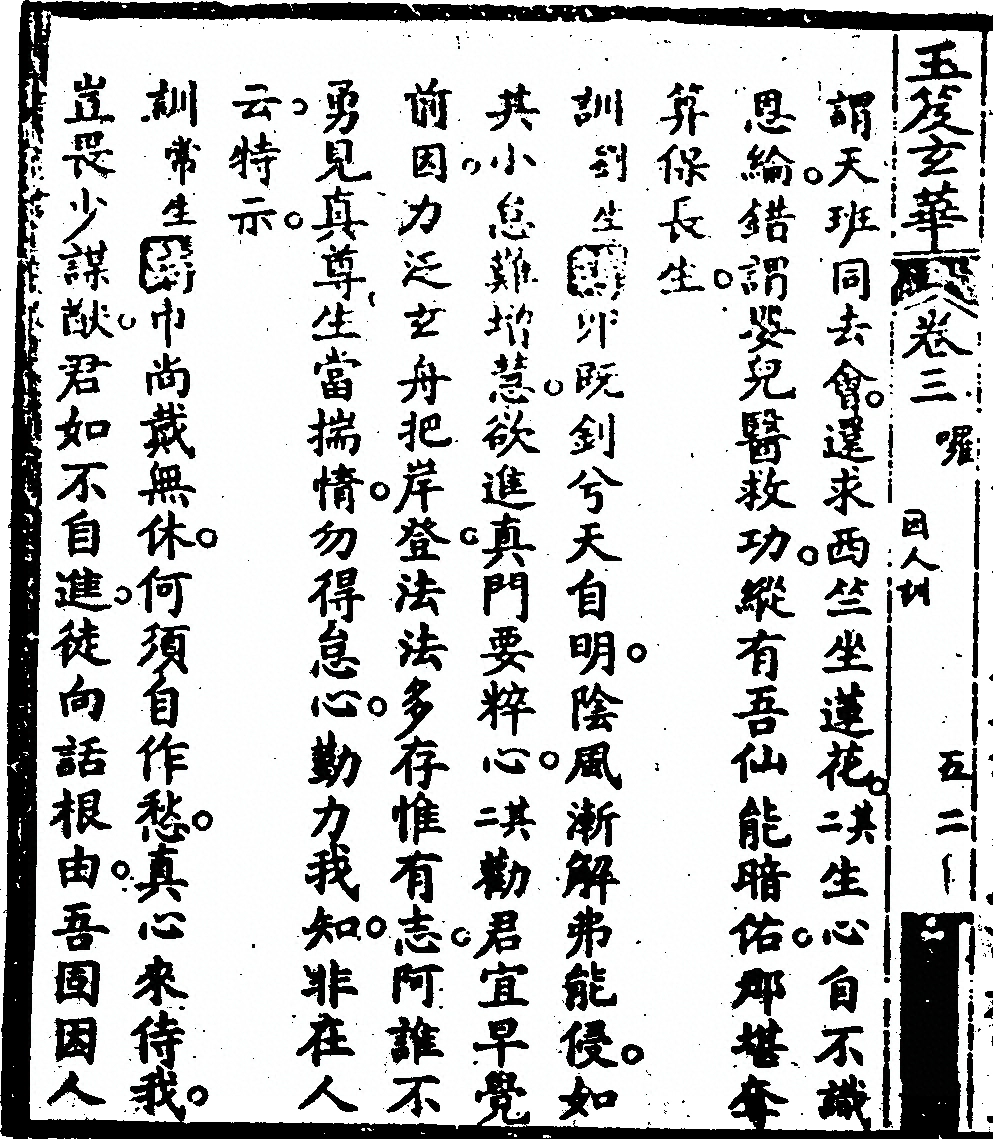 玉笈玄華 卷三 囉 因人訓 五二
謂天班同去會還求西竺坐蓮花其二生心自不識
恩綸錯謂嬰兒醫救功縱有吾仙能暗佑那堪奪
算保長生
訓劉生 卯既釗兮天自明陰風漸解弗能侵如
其小怠難增慧欲進真門要粹心其二勸君宜早覺
前因力泛玄舟把岸登法法多存惟有志阿誰不
勇見真尊生當揣情勿得怠心勤力我知非在人
云特示
訓常生 巾尚戴無休何須自作愁真心來侍我
豈畏少謀猷君如不自進徒向話根由吾固因人